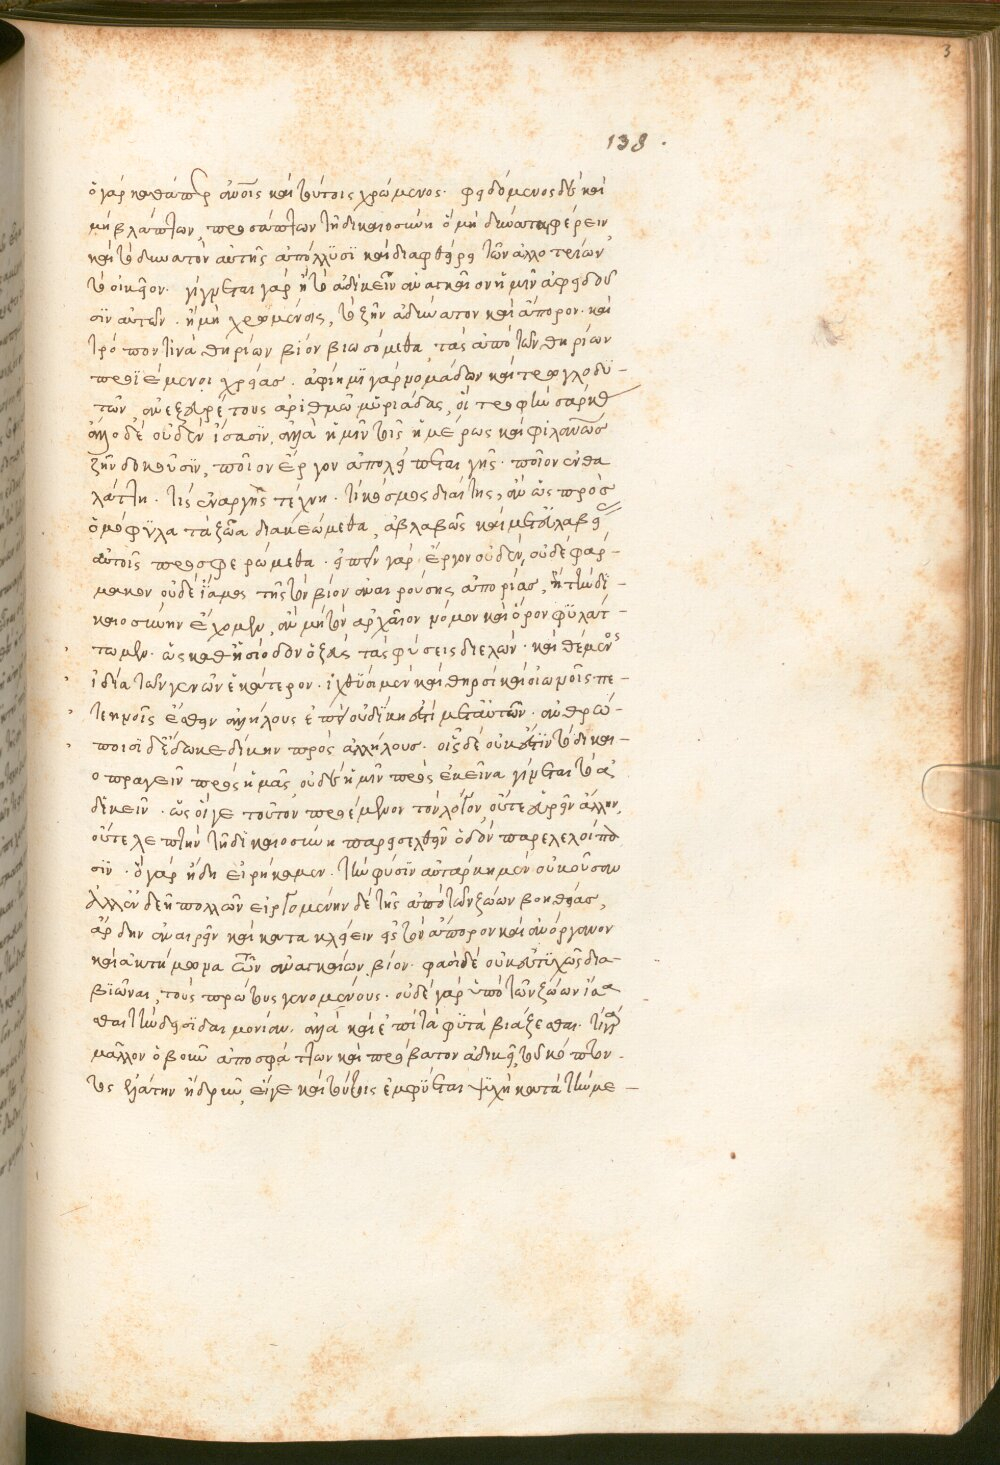 3
138 .
ὁ γὰρ καθάπερ ἀψύχοις καὶ τούτοις χρώμενος · φειδόμενος δὲ καὶ
μὴ βλάπτων, προσάπτων τῆ δικαιοσύνη ὃ μὴ δύναται φέρειν,
καὶ τὸ δυνατὸν αὐτῆς ἀπόλλυσι καὶ διαφθείρει τῶν ἀλλοτρίων
τὸ οἰκεῖον · γίγνεται γὰρ ἢ τὸ ἀδικεῖν ἀναγκαῖον ἡμῖν ἀφειδοῦ
σιν αὐτῶν · ἢ μὴ χρωμένοις, τὸ ζῆν ἀδύνατον καὶ ἄπορον · καὶ
τρόπον τινὰ θηρίων βίον βιωσόμεθα τὰς ἀπὸ τῶν θηρίων
προϊέμενοι χρείας · ἀφίημι γὰρ νομάδων καὶ τρωγλοδυ-
τῶν, ἀνεξευρέτους ἀριθμῶ μυριάδας, οἳ τροφὴν σάρκας
ἄλλο δὲ οὐδὲν ἴσασιν, ἀλλὰ ἡμῖν τοῖς ἡμέρως καὶ φιλανθρώπως
ζῆν δοκοῦσιν, ποῖον ἔργον ἀπολείπεται γῆς · ποῖον ἐν θα
λάττη · τίς ἐναργὴς τέχνη · τί κόσμος διαίτης, ἂν ὡς πρὸς
ὁμόφυλα τὰ ζῶα διακεώμεθα, ἀβλαβῶς καὶ μετ' εὐλαβεί
αὐτοῖς προσφερώμεθα · εἰπεῖν γὰρ ἔργον οὐδὲν, οὐδὲ φάρ-
μακον οὐδὲ ἴαμα τῆς τὸν βίον ἀναιρούσης ἀπορίας, ἢ τὴν δι-
καιοσύνην ἔχομεν, ἂν μὴ τὸν ἀρχαῖον νόμον καὶ ὅρον φυλάτ-
τωμεν · ὡς καθ' ἡσίοδον ὁ ζεὺς τὰς φύσεις διελών · καὶ θέμενος
ἰδία τῶν γενῶν ἑκάτερον · ἰχθύσι μὲν καὶ θηρσὶ καὶ οἰωνοῖς πε-
τεηνοῖς ἔσθειν ἀλλήλους ἐπεὶ οὐ δίκη ἐστὶ μετ' αὐτῶν · ἀνθρώ-
ποισι δ' ἔδωκε δίκην πρὸς ἀλλήλους · οἷς δὲ οὐκ ἔστιν τὸ δικαι-
οπραγεῖν πρὸς ἡμᾶς, οὐδὲ ἡμῖν πρὸς ἐκεῖνα γίνεται τὸ ἀ
δικεῖν · ὡς οἵ γε τοῦτον προέμενοι τὸν λόγον, οὔτε εὐρεῖαν ἄλλην,
οὔτε λεπτὴν τῆ δικαιοσύνη παρεισελθεῖν ὁδὸν παρελελοίπα
σιν · ὃ γὰρ ἤδη εἰρήκαμεν · τὴν φύσιν αὐτάρκη μὲν οὐκ οὖσαν
ἀλλ' ἐνδεῆ πολλῶν εἰργομένην δὲ τῆς ἀπὸ τῶν ζώων βοηθείας,
ἄρδην ἀναιρεῖν καὶ κατακλείειν εἰς τὸν ἄπορον καὶ ἀνόργανον
καὶ ἀκτήμονα τῶν ἀναγκαίων βίον · φασὶ δὲ οὐκ εὐτυχῶς δια-
βιῶναι, τοὺς πρώτους γενομένους · οὐδὲ γὰρ ὑπὸ τῶν ζώων ἵστα
σθαι τὴν δεισιδαιμονίαν, ἀλλὰ καὶ ἐπὶ τὰ φυτὰ βιάζεσθαι · τί γὰρ
μᾶλλον ὁ βοῦν ἀποσφάττων καὶ πρόβατον ἀδικεῖ, τοῦ κόπτον-
τος ἐλάτην ἢ δρῦν, εἴ γε καὶ τούτοις ἐμφύεται ψυχὴ κατὰ τὴν με-